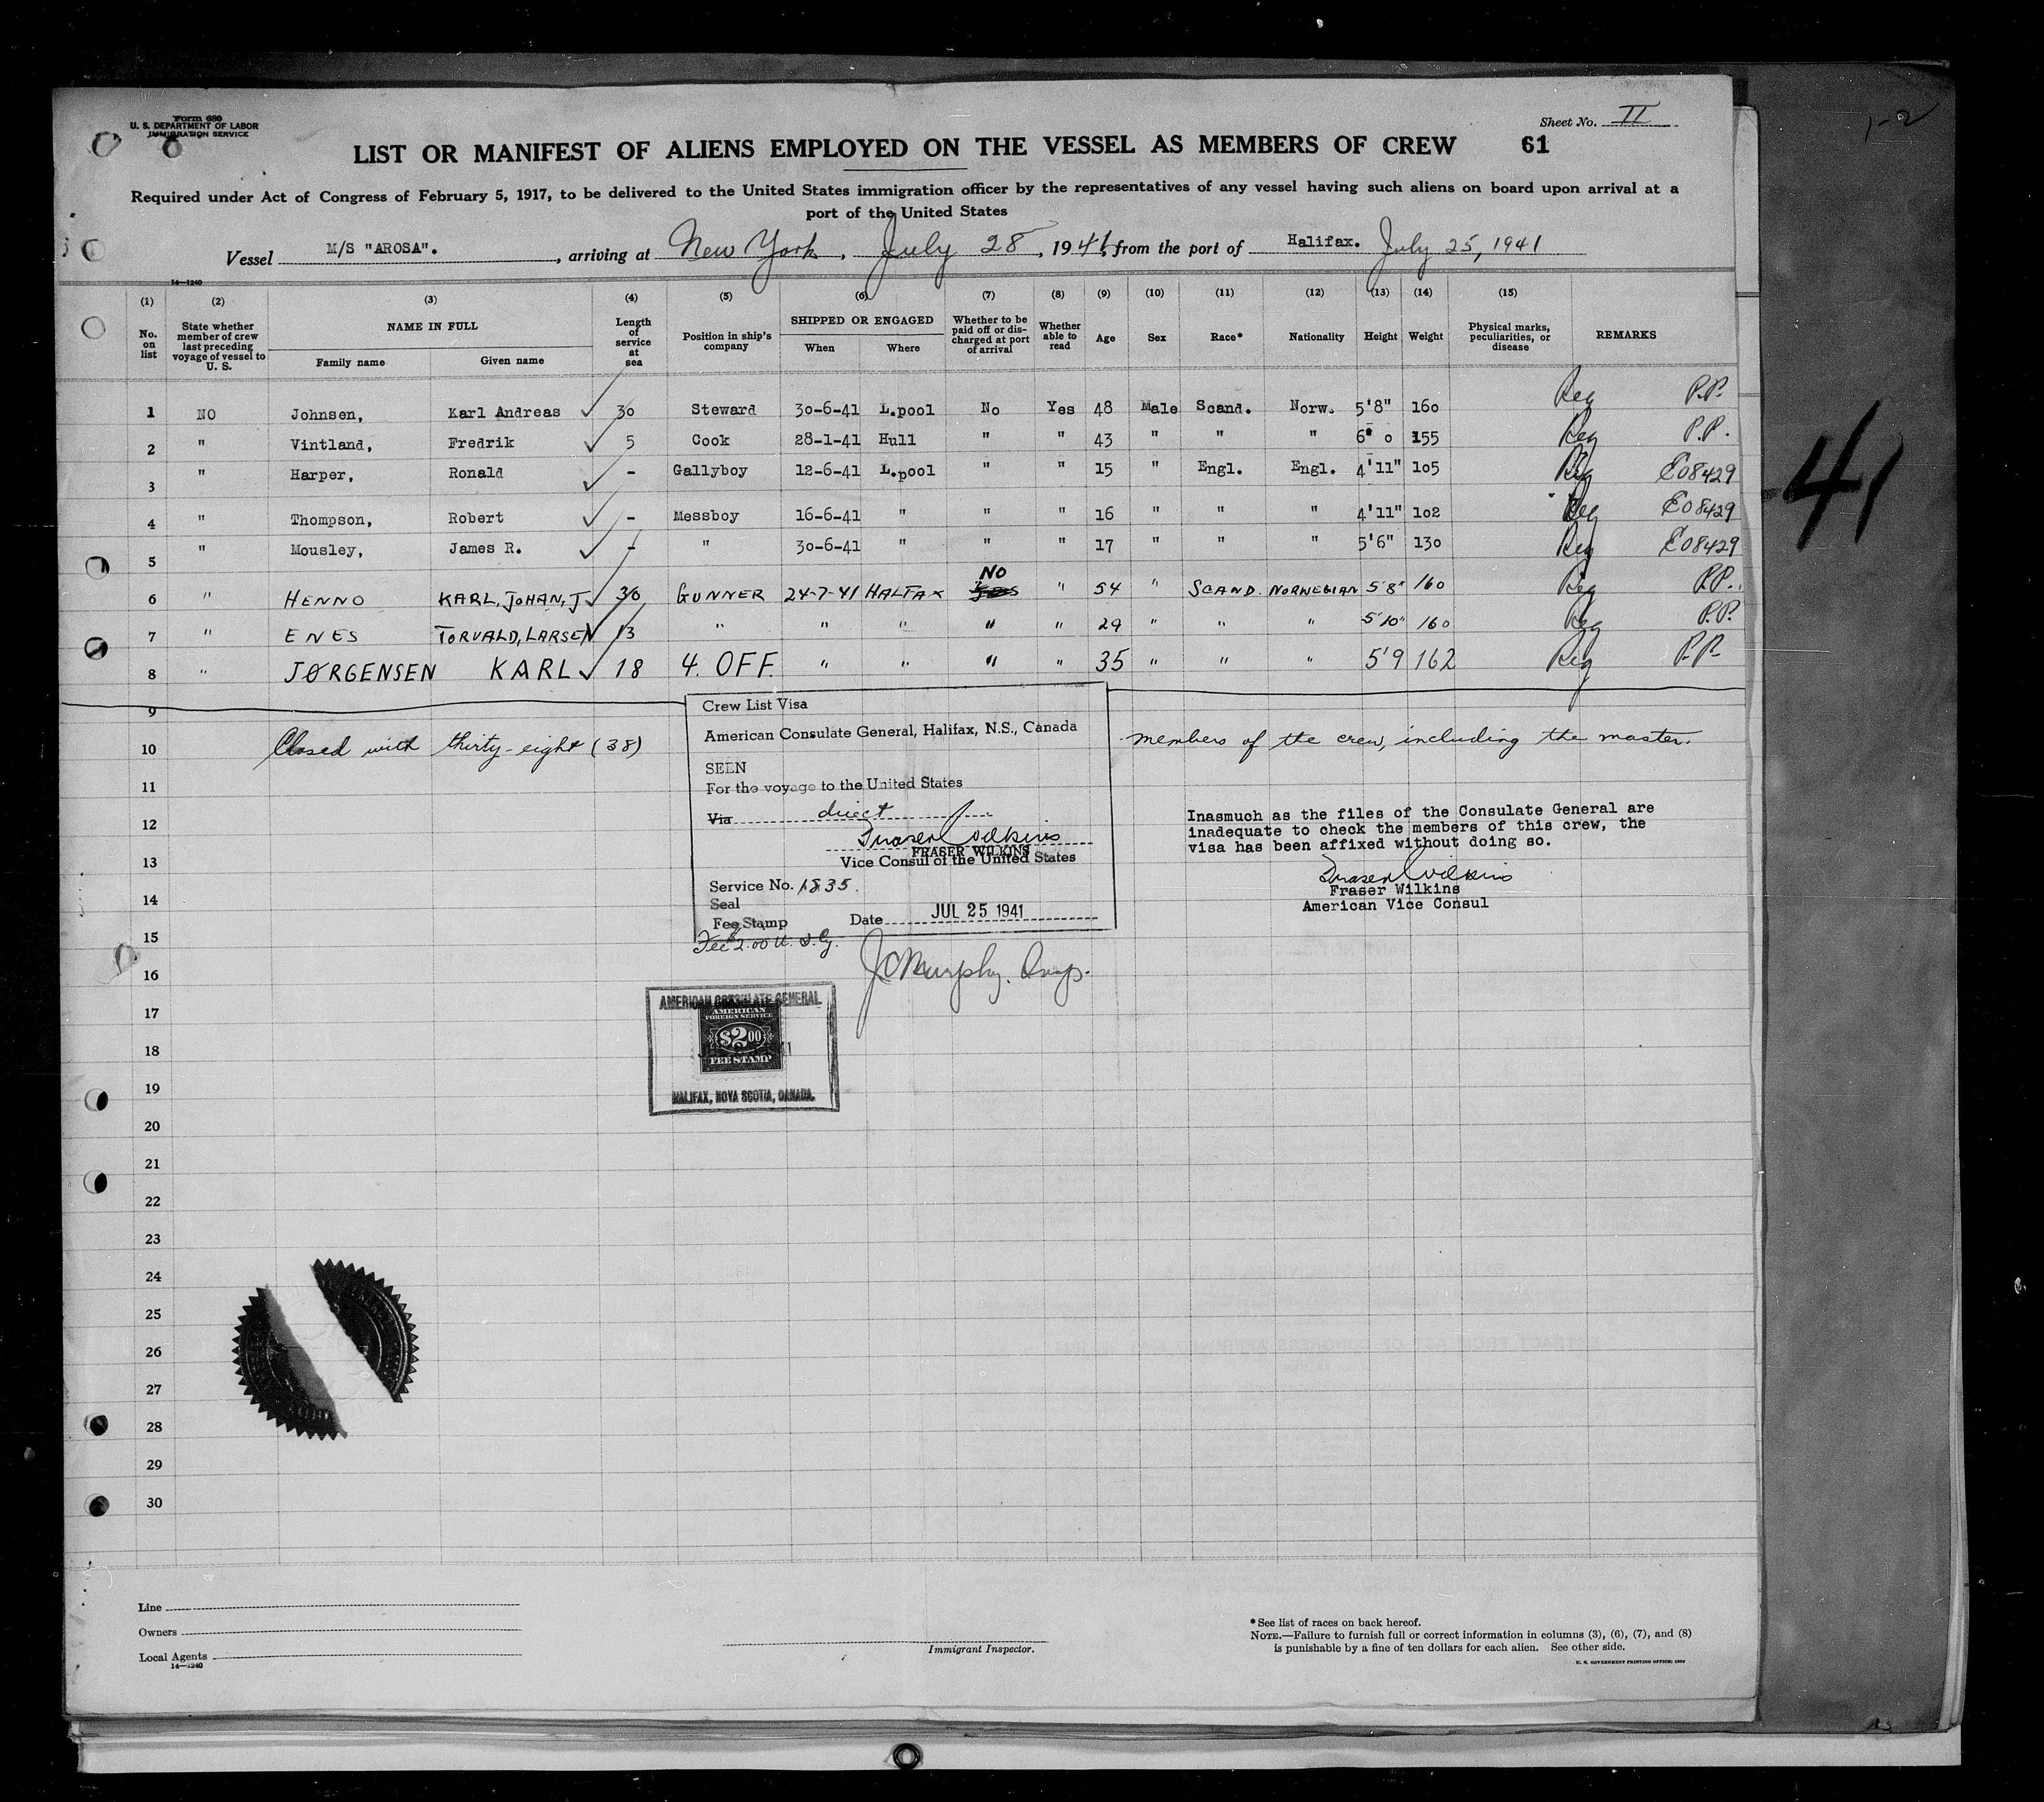 Form 680
U. S. DEPARTMENT OF LABOR
IMMIGRATION SERVICE
Sheet No. II
1-2
LIST OR MANIFEST OF ALIENS EMPLOYED ON THE VESSEL AS MEMBERS OF CREW 61
Required under Act of Congress of February 5, 1917, to be delivered to the United States immigration officer by the representatives of any vessel having such aliens on board upon arrival at a
port of the United States
Vessel M/S "AROSA". , arriving at New York , July 28 , 1941, from the port of Halifax. July 25, 1941
14—1240
(1) (2) (3) (4) (5) (6) (7) (8) (9) (10) (11) (12) (13) (14) (15)
No. on list | State whether member of crew last preceding voyage of vessel to U. S. | NAME IN FULL Family name Given name | Length of service at sea | Position in ship's company | SHIPPED OR ENGAGED When Where | Whether to be paid off or discharged at port of arrival | Whether able to read | Age | Sex | Race* | Nationality | Height | Weight | Physical marks, peculiarities, or disease | REMARKS
1 NO Johnsen, Karl Andreas ✓ 30 Steward 30-6-41 L.pool No Yes 48 Male Scand. Norw. 5'8" 160 Reg P.P.
2 " Vintland, Fredrik ✓ 5 Cook 28-1-41 Hull " " 43 " " " 6' 0 155 Reg P.P.
3 " Harper, Ronald ✓ - Gallyboy 12-6-41 L.pool " " 15 " Engl. Engl. 4'11" 105 Reg E08429
4 " Thompson, Robert ✓ - Messboy 16-6-41 " " " 16 " " " 4'11" 102 Reg E08429
5 " Mousley, James R. ✓ - " 30-6-41 " " " 17 " " " 5'6" 130 Reg E08429
6 " HENNO KARL, JOHAN, J ✓ 30 GUNNER 24-7-41 HALFAX NO " 54 " SCAND. NORWEGIAN 5'8" 160 Reg P.P.
7 " ENES TORVALD, LARSEN ✓ 13 " " " " " 29 " " " 5'10" 160 Reg P.P.
8 " JØRGENSEN KARL ✓ 18 4. OFF. " " " " 35 " " " 5'9 162 Reg P.P.
41
9
10 Closed with thirty-eight (38) members of the crew, including the master.
Crew List Visa
American Consulate General, Halifax, N.S., Canada
SEEN
For the voyage to the United States
Via direct
Fraser Wilkins
FRASER WILKINS
Vice Consul of the United States
Service No. 1835.
Seal
Fee Stamp Date JUL 25 1941
Fee $2.00 U.S. Cy.
J C Murphy. Insp.
Inasmuch as the files of the Consulate General are
inadequate to check the members of this crew, the
visa has been affixed without doing so.
Fraser Wilkins
Fraser Wilkins
American Vice Consul
AMERICAN CONSULATE GENERAL
AMERICAN
FOREIGN SERVICE
$2.00
FEE STAMP
HALIFAX, NOVA SCOTIA, CANADA.
11
12
13
14
15
16
17
18
19
20
21
22
23
24
25
26
27
28
29
30
Line
Owners
Local Agents
14—1240
Immigrant Inspector.
*See list of races on back hereof.
NOTE.—Failure to furnish full or correct information in columns (3), (6), (7), and (8)
is punishable by a fine of ten dollars for each alien. See other side.
U. S. GOVERNMENT PRINTING OFFICE: 1939